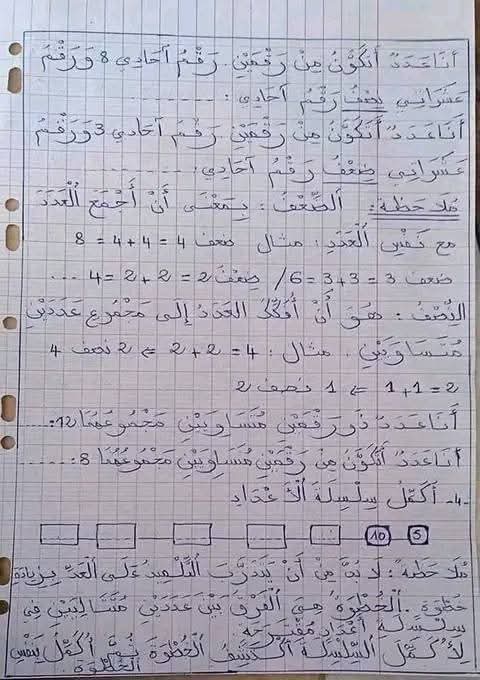 أَنَا عَدَدٌ أَتَكَوَّنُ مِنْ رَقْمَيْنِ. رَقْمُ آحَادِي 8 وَرَقْمُ
عَشَرَاتِي نِصْفُ رَقْمِ آحَادِي: ..........
أَنَا عَدَدٌ أَتَكَوَّنُ مِنْ رَقْمَيْنِ رَقْمُ آحَادِي 3 وَرَقْمُ
عَشَرَاتِي ضِعْفُ رَقْمِ آحَادِي: ........
مُلَاحَظَة: اَلضِّعْفُ: بِمَعْنَى أَنْ أَجْمَعَ الْعَدَدَ
مَعَ نَفْسِ الْعَدَدِ: مثال ضعف 4 = 4+4 = 8
ضعف 3 = 3+3 = 6 / ضِعْفُ 2 = 2+2 = 4 ...
النِّصْفُ: هُوَ أَنْ أُفَكِّكَ الْعَدَدَ إِلَى مَجْمُوعِ عَدَدَيْنِ
مُتَسَاوِيَيْنِ. مثال: 4 = 2+2 ⇒ 2 نصف 4
2 = 1+1 ⇒ 1 نصف 2
أَنَا عَدَدٌ ذُو رَقْمَيْنِ مُتَسَاوِيَيْنِ مَجْمُوعُهُمَا 12: ....
أَنَا عَدَدٌ أَتَكَوَّنُ مِنْ رَقْمَيْنِ مُتَسَاوِيَيْنِ مَجْمُوعُهُمَا 8: ......
-4- أُكَمِّلُ سِلْسِلَةَ الْأَعْدَادِ
5 10
مُلَاحَظَة: لَا بُدَّ مِنْ أَنْ يَتَدَرَّبَ التِّلْمِيذُ عَلَى الْعَدِّ بِزِيَادَةِ
خُطْوَة. الْخُطْوَةُ هِيَ الْفَرْقُ بَيْنَ عَدَدَيْنِ مُتَتَالِيَيْنِ فِي
سِلْسِلَةِ أَعْدَادٍ مُقْتَرَحَة.
لِأُكَمِّلَ السِّلْسِلَةَ أَكْتَشِفُ الْخُطْوَةَ ثُمَّ أُكَمِّلُ بِنَفْسِ
الْخُطْوَة.